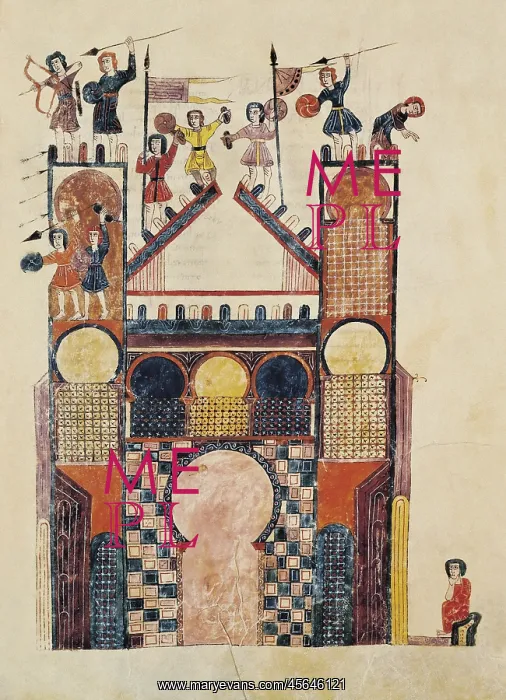 ME
PL
ME
PL
www.maryevans.com/45646121